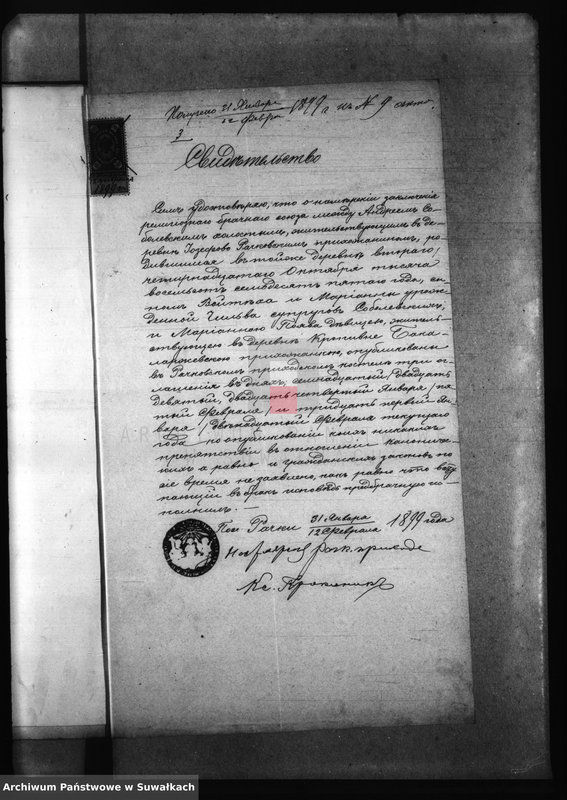 Получено 31 Января / 12 Февра 1899 г. къ N 9
3
1899
Свидѣтельство
Симъ удостовѣряю, что о намѣреніи заключенія
религіознаго брачнаго союза между Андреемъ Со-
болевскимъ холостымъ, жительствующимъ въ де-
ревнѣ Рачковскимъ прихожаниномъ, ро-
дившимся въ тойже деревнѣ втораго /
четырнадцатаго Октября тысяча
восемьсотъ семьдесятъ пятаго года, сы-
номъ Войтѣха и Маріанны урож-
денной супруговъ Соболевскихъ,
и Маріанною дѣвицею, житель-
ствующею въ деревнѣ Кропивне Бака-
ларжевскою прихожанкою, опубликованы
въ Рачковскомъ приходскомъ костелѣ три о-
глашенія въ дняхъ, семнадцатый / двадцать
девятый, двадцать четвертый Января / пя-
тый Февраля / и тридцать первый Ян-
варя / двѣнадцатый Февраля текущаго
года по опубликованіи коихъ никакихъ
препятствій въ отношеніи каноничес-
кихъ а равно и гражданскихъ законовъ по
сіе время не заявлено, какъ равно что всту
пающіи въ бракъ исповѣдь предбрачную ис-
полнили. —
Пос Рачки 31 Января / 12 Февраля 1899 года
Настоятель Рачк. прихода
Кс.
ARCHIW
Archiwum Państwowe w Suwałkach